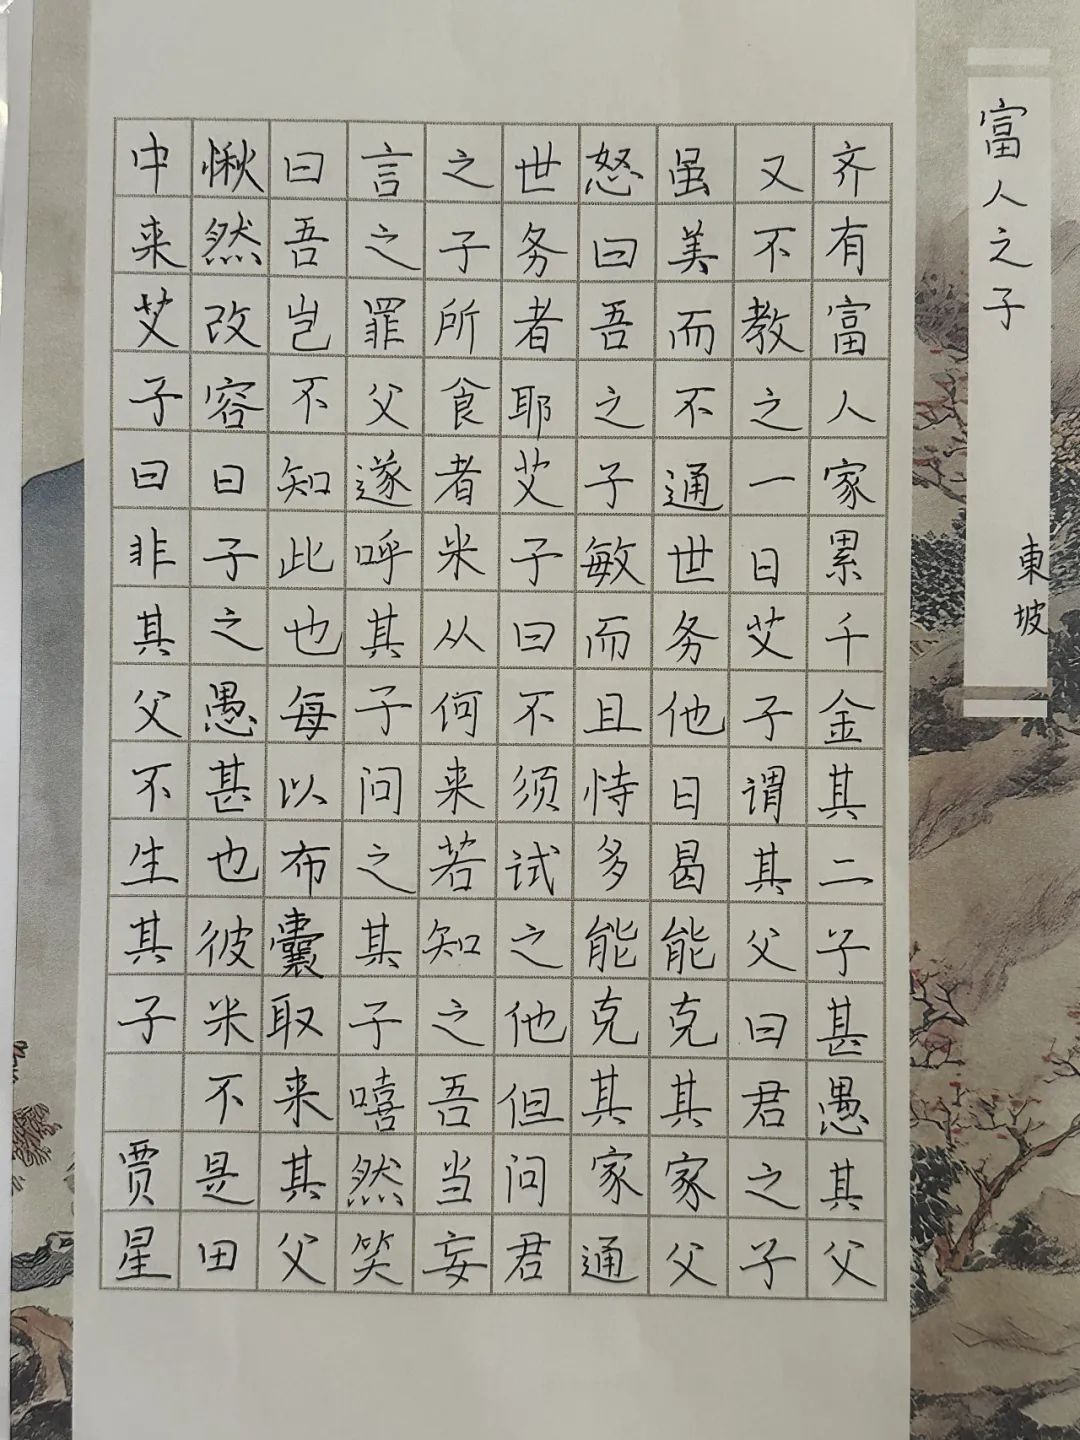 富人之子
東坡
齐有富人家累千金其二子甚愚其父
又不教之一日艾子谓其父曰君之子
虽美而不通世务他日曷能克其家父
怒曰吾之子敏而且恃多能克其家通
世务者耶艾子曰不须试之他但问君
之子所食者米从何来若知之吾当妄
言之罪父遂呼其子问之其子嘻然笑
曰吾岂不知此也每以布囊取来其父
愀然改容曰子之愚甚也彼米不是田
中来艾子曰非其父不生其子
贾星